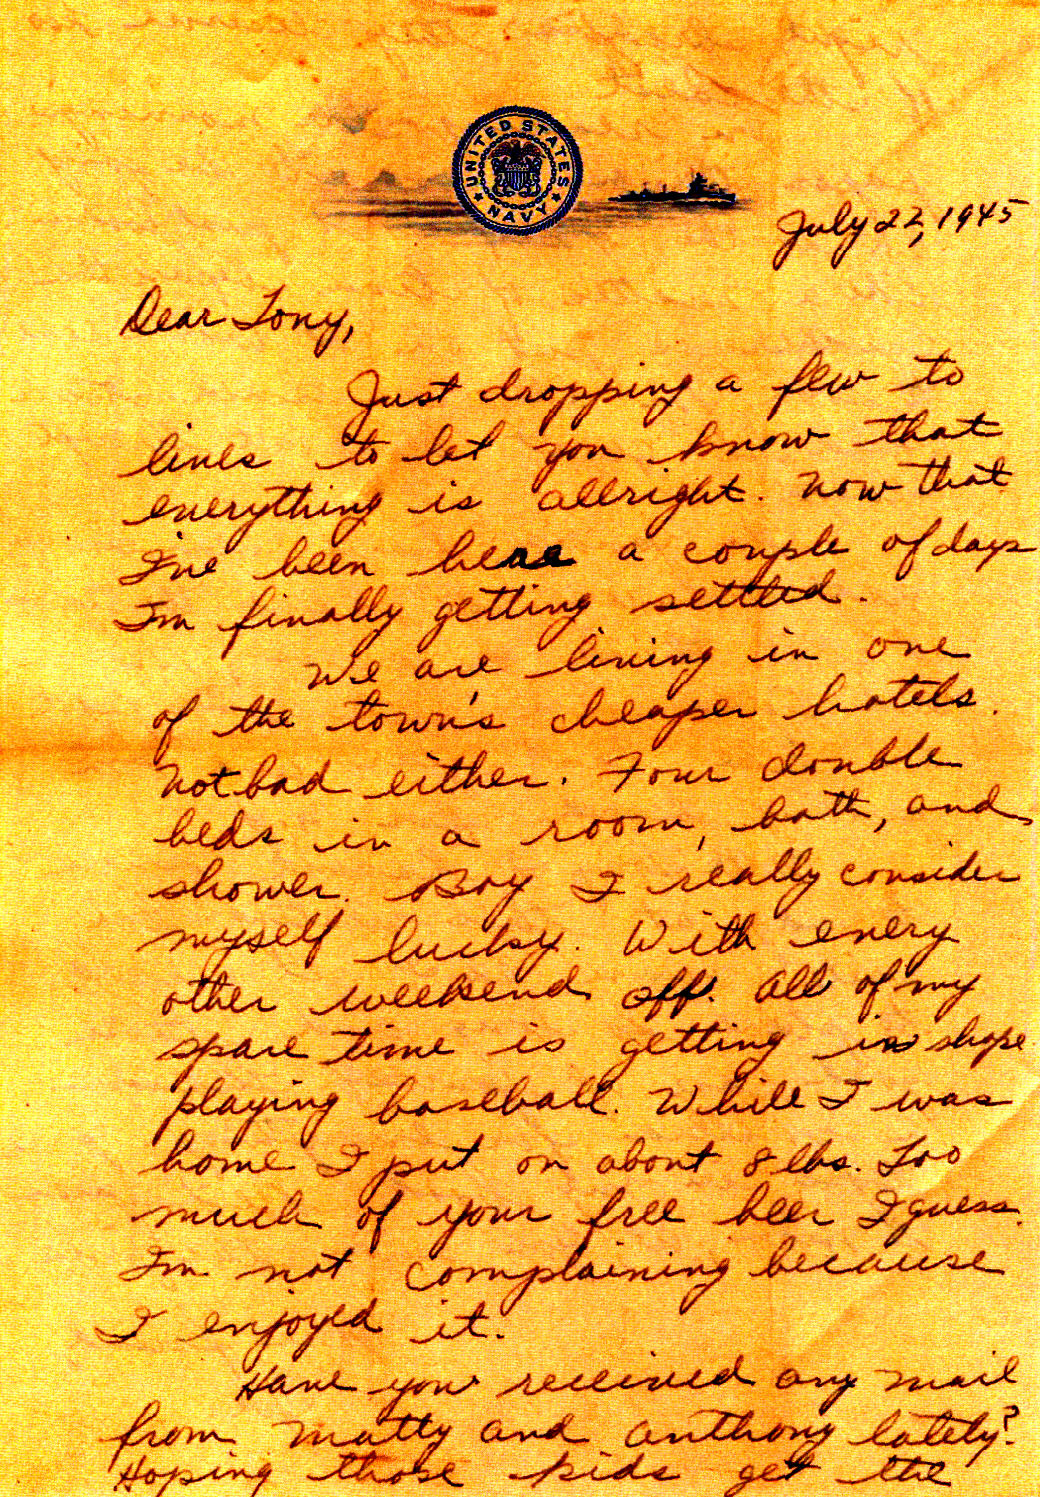 UNITED STATES NAVY
July 22, 1945
Dear Tony,
Just dropping a few to
lines to let you know that
everything is allright. Now that
I've been here a couple of days
I'm finally getting settled.
We are living in one
of the town's cheaper hotels.
Not bad either. Four double
beds in a room, bath, and
shower. Boy I really consider
myself lucky. With every
other weekend off. All of my
spare time is getting in shape
playing baseball. While I was
home I put on about 8 lbs. Too
much of your free beer I guess.
I'm not complaining because
I enjoyed it.
Have you received any mail
from Matty and Anthony lately?
Hoping those kids get the